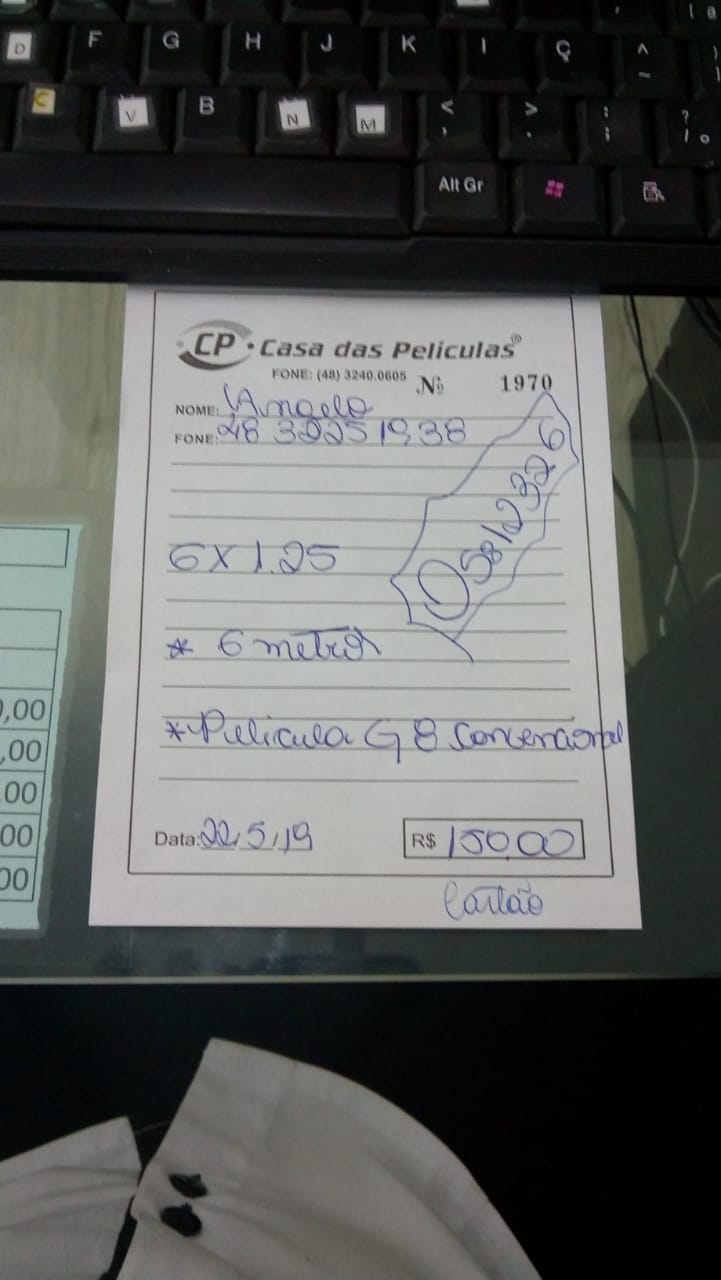 D F G H J K l Ç ^ ~
C V B N M < , > . : ; ? /
Alt Gr
CP • Casa das Peliculas®
FONE: (48) 3240.0605 Nº 1970
NOME: Angelo
FONE: 48
05812326
6 X 1.25
* 6 metros
* Pelicula G 8 Convencional
Data: 22,5,19
R$ 150,00
Cartão
,00
,00
.00
00
00